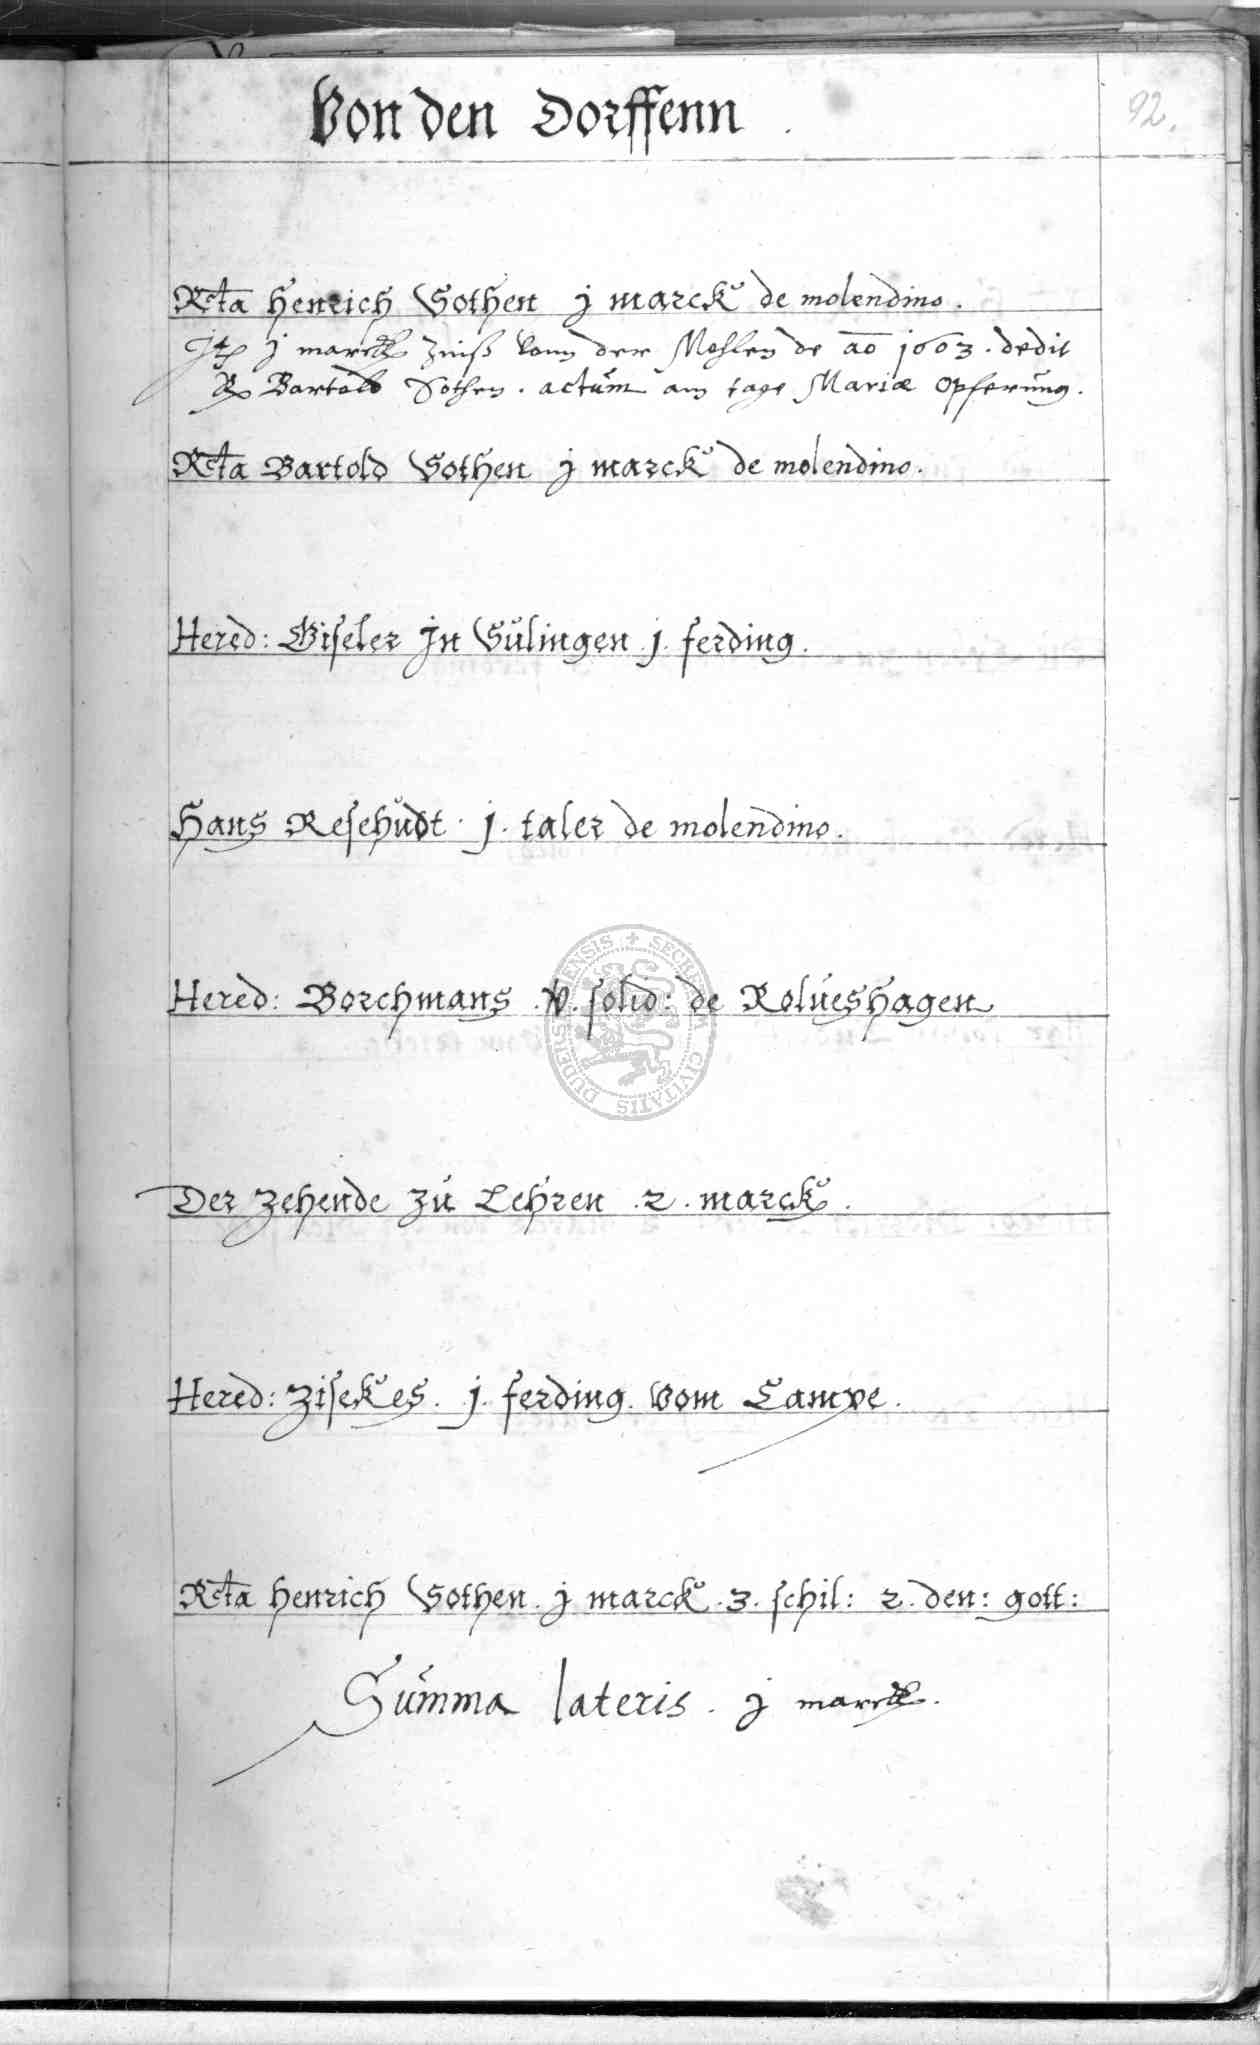 Von den Dorffenn
92.
Rcta Henrich Sothen j marck de molendino.
Itp j marck Zinß vonn der Mohlen de ao 1603. dedit
Bartold Sothen. actum am tage Mariæ opferung.
Rcta Bartold Sothen j marck de molendino.
Hered: Giseler Jn Sulingen .j. ferding.
Hans Resehudt . j. taler de molendino.
Hered: Borchmans .v. solid: de Rolueshagen
Der Zehende Zu Lehren .2. marck.
Hered: Zisekes. .j. ferding. vom Campe.
Rcta Henrich Sothen. j marck .3. schil: 2. den: gott:
Summa lateris . j marck.
SECRETUM CIVITATIS DUDERSTADENSIS